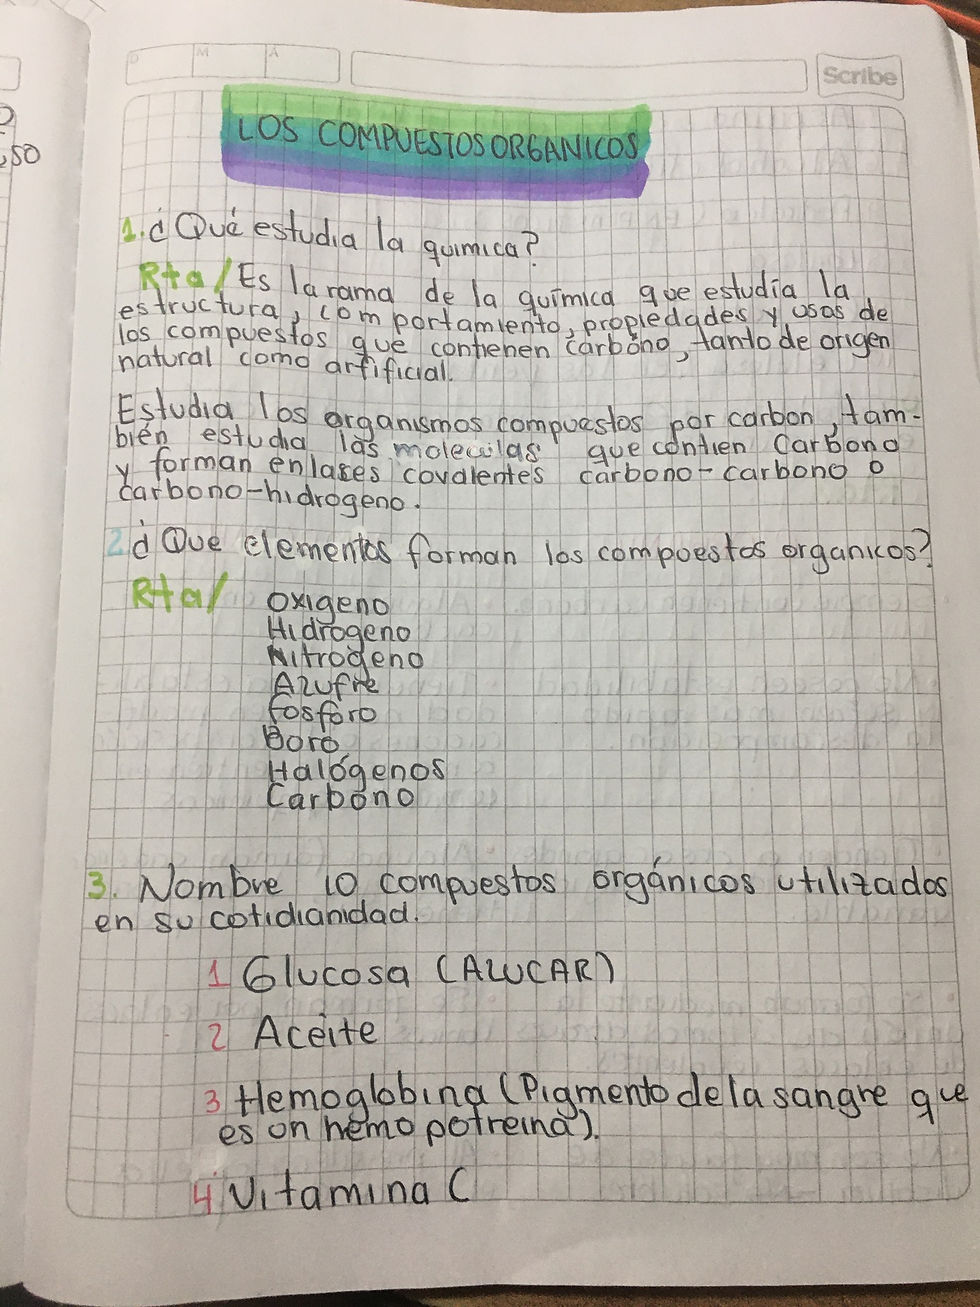 D M A
Scribe
50
LOS COMPUESTOS ORGANICOS
1. ¿Qué estudia la quimica?
Rta/ Es la rama de la química que estudia la
estructura, comportamiento, propiedades y usos de
los compuestos que contienen carbono, tanto de origen
natural como artificial.
Estudia los organismos compuestos por carbon, tam-
bién estudia las moleculas que contien Carbono
y forman enlases covalentes carbono-carbono o
carbono-hidrogeno.
2 ¿Que elementos forman los compuestos organicos?
Rta/ Oxigeno
Hidrogeno
Nitrogeno
Azufre
fosforo
Boro
Halógenos
Carbono
3. Nombre 10 compuestos orgánicos utilizados
en su cotidianidad.
1 Glucosa (AZUCAR)
2 Aceite
3 Hemoglobina (Pigmento de la sangre que
es on hemo potreina).
4 Vitamina C